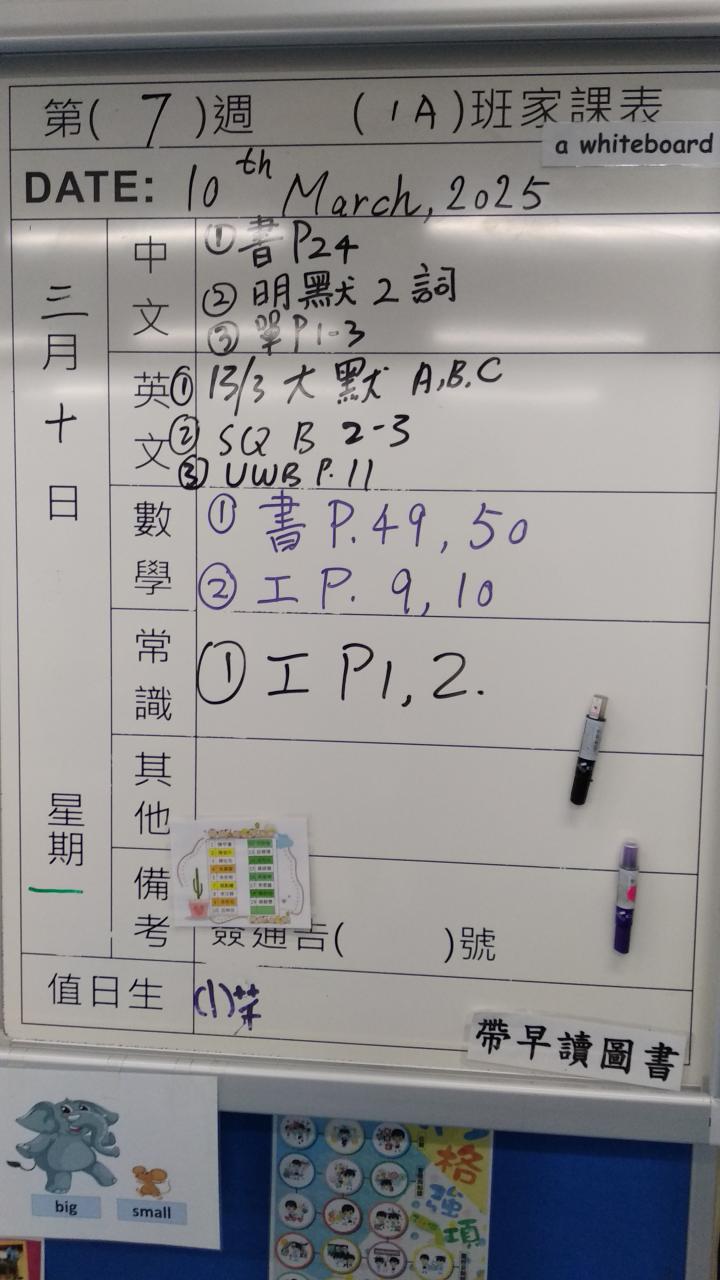 第( 7 )週 ( 1A )班家課表
a whiteboard
DATE: 10th March, 2025
三月十日
星期
中文
①書 P24
②明默 2 詞
③單 P1-3
英文
① 13/3 大默 A,B,C
② SQ B 2-3
③ UWB P.11
數學
① 書 P.49, 50
② 工 P. 9, 10
常識
① 工 P1, 2.
其他
備考
簽通告( )號
值日生
(1)
帶早讀圖書
big
small
格
強項